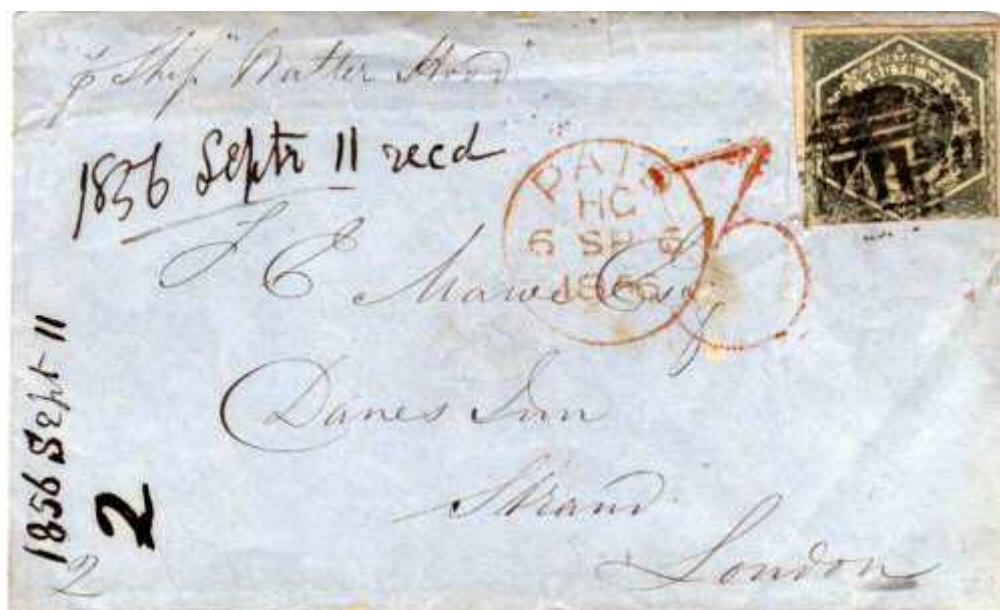 p Ship "Walter Hood"
1856 Septr 11 recd
POSTAGE
SOUTH W
PAID
HC
6 SP 6
1856
3
J C Mawe Esqr
Danes Inn
Strand
London
1856 Sept 11
2
2